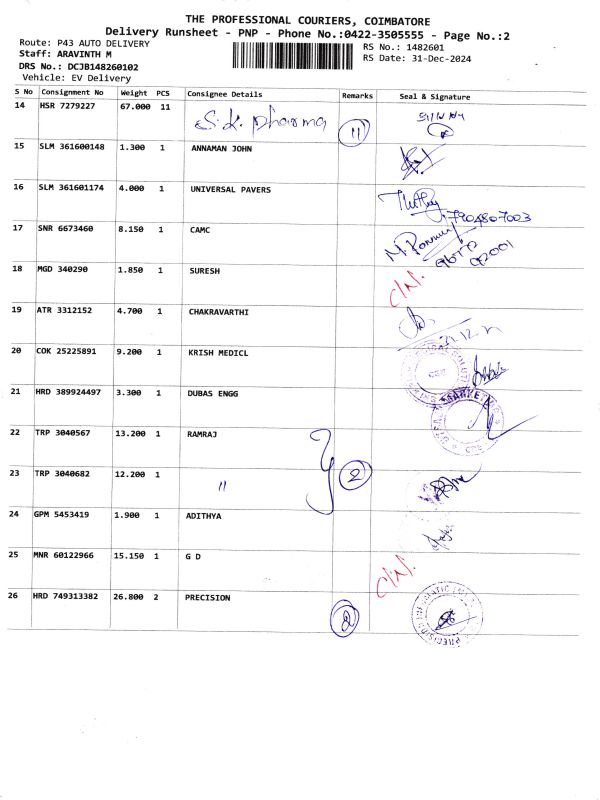 THE PROFESSIONAL COURIERS, COIMBATORE
Delivery Runsheet - PNP - Phone No.:0422-3505555 - Page No.:2
Route: P43 AUTO DELIVERY
RS No.: 1482601
Staff: ARAVINTH M
RS Date: 31-Dec-2024
DRS No.: DCJB148260102
Vehicle: EV Delivery
S No Consignment No Weight PCS Consignee Details Remarks Seal & Signature
14 HSR 7279227 67.000 11 S.K. Pharma 11
15 SLM 361600148 1.300 1 ANNAMAN JOHN
16 SLM 361601174 4.000 1 UNIVERSAL PAVERS 7904807003
17 SNR 6673460 8.150 1 CAMC
18 MGD 340290 1.850 1 SURESH
19 ATR 3312152 4.700 1 CHAKRAVARTHI
20 COK 25225891 9.200 1 KRISH MEDICL
21 HRD 389924497 3.300 1 DUBAS ENGG
22 TRP 3040567 13.200 1 RAMRAJ
23 TRP 3040682 12.200 1 " 2
24 GPM 5453419 1.900 1 ADITHYA
25 MNR 60122966 15.150 1 G D
26 HRD 749313382 26.800 2 PRECISION 2